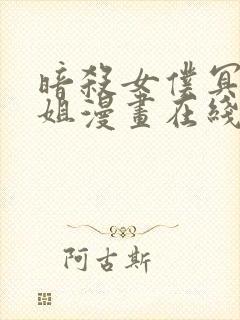 暗殺女僕冥
姐漫畫在綫
阿古斯